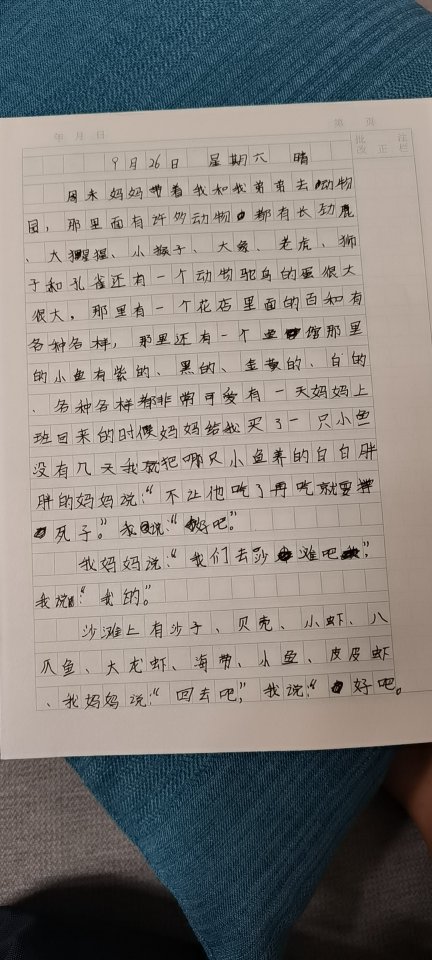 年 月 日 第 页
批 注
改 正 栏
9月26日 星期六 晴
周末妈妈带着我和我弟弟去动物
园，那里面有许多动物都有长劲鹿
、大猩猩、小猴子、大象、老虎、狮
子和孔雀还有一个动物驼鸟的蛋很大
很大，那里有一个花店里面的百和有
各种各样，那里还有一个鱼馆那里
的小鱼有紫的、黑的、金黄的、白的
、各种各样都非常可爱有一天妈妈上
班回来的时候妈妈给我买了一只小鱼
没有几天我就把哪只小鱼养的白白胖
胖的妈妈说：“不让他吃了再吃就要
死子。”我说：“好吧。”
我妈妈说：“我们去沙滩吧”，
我说：“我的。”
沙滩上有沙子、贝壳、小虾、八
爪鱼、大龙虾、海带、小鱼、皮皮虾
、我妈妈说：“回去吧，”我说：“好吧。